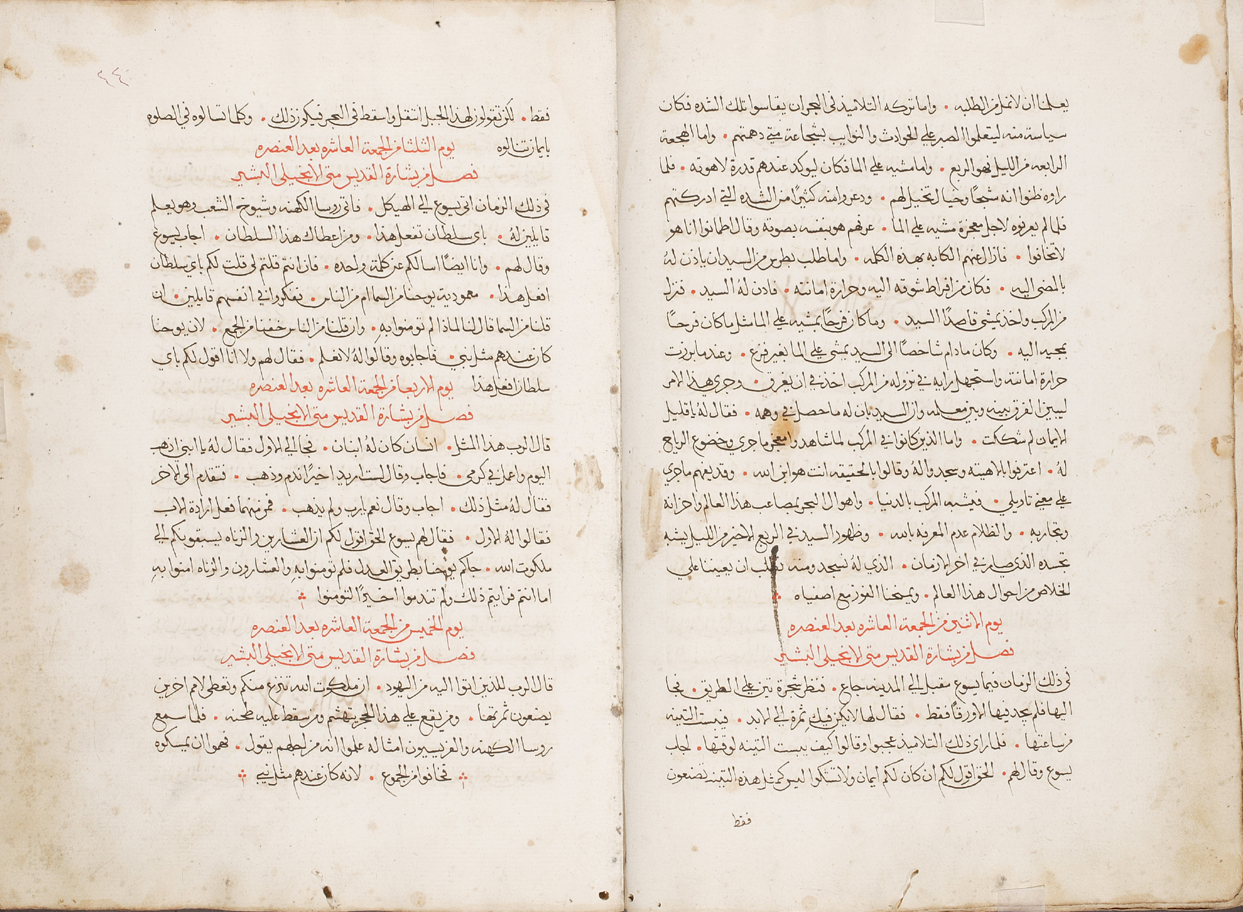 يعلمنا ان لا نمل من الطلبه • واما تركه التلاميذ في البحر ان يقاسوا تلك الشده فكان
سياسة منه ليتعلموا الصبر على الحوادث والنوايب بشجاعة متى دهمتهم • واما الهجعة
الرابعه من الليل فهو الربع • واما مشيه على الما فكان ليوكد عندهم قدرة لاهوته • فلما
راوه ظنوا انه شبحًا وخيالاً تخيل لهم • وذعروا منه كثيرًا من الشده التي ادركتهم
فلما لم يعرفوه لاجل معجزة مشيه على الما • عرفهم هو بنفسه بصوته وقال اطمانوا انا هو
لا تخافوا • فازال عنهم الكابه بهذه الكلمه • واما طلب بطرس من السيد ان ياذن له
بالمضي اليه • فكان من افراط شوقه اليه وحرارة امانته • فاذن له السيد • فنزل
من المركب واخذ يمشي قاصدًا السيد • وما كان فرحًا بمشيه على الما مثل ما كان فرحًا
بمجيه اليه • وكان ما دام شاخصًا الى السيد يمشي على الما بغير فزع • وعندما برزت
حرارة امانته واستجهل رايه في نزوله من المركب اخذ في ان يغرق • وجرى هذا الامر
ليبين الفرق بينه وبين معلمه وان السيد بان له ما حصل في وهمه • فقال له يا قليل
الايمان لم شككت • واما الذين كانوا في المركب لما شاهدوا معجز ما جرى وخضوع الرياح
له • اعترفوا بالاهيته وسجدوا له وقالوا بالحقيقه انت هو ابن الله • وقد يفهم ما جرى
على معنى تاويلي • فيشبه المركب بالدنيا • واهوال البحر بمصاعب هذا العالم واحزانه
وتجاربه • والظلام عدم المعرفه بالله • وظهور السيد في الربع الاخير من الليل يشبه
تجسده الذي صار في اخر الازمان • الذي له نسجد ومنه نطلب ان يعيننا على
الخلاص من احوال هذا العالم • ويمنحنا الفوز مع اصفياه
يوم الاثنين من الجمعة العاشره بعد العنصره
فصل من بشارة القديس متى الانجيلي البشير
في ذلك الزمان فيما يسوع مقبل الى المدينه جاع • فنظر شجرة تين على الطريق • فجا
اليها فلم يجد فيها الا ورقًا فقط • فقال لها لا يكن فيكِ ثمرة الى الابد • فيبست التينه
من ساعتها • فلما راى ذلك التلاميذ عجبوا وقالوا كيف يبست التينه لوقتها • اجاب
يسوع وقال لهم • الحق اقول لكم ان كان لكم ايمان ولا تشكوا ليس كمثل هذه التينه تصنعون
فقط
٤٤
فقط • لكن تقولون لهذا الجبل انتقل واسقط في البحر فيكون ذلك • وكلما تسالوه في الصلوه
بايمان تنالوه يوم الثلثا من الجمعة العاشره بعد العنصره
فصل من بشارة القديس متى الانجيلي البشير
في ذلك الزمان اتى يسوع الى الهيكل • فاتى روسا الكهنه وشيوخ الشعب وهو يعلم
قايلين له • باي سلطان تفعل هذا • ومن اعطاك هذا السلطان • اجاب يسوع
وقال لهم • وانا ايضًا اسالكم عن كلمة واحده • فان انتم قلتم لي قلت لكم باي سلطان
افعل هذا • معمودية يوحنا من السما ام من الناس • ففكروا في انفسهم قايلين • ان
قلنا من السما قال لنا لماذا لم تومنوا به • وان قلنا من الناس خفنا من الجمع • لان يوحنا
كان عندهم مثل نبي • فاجابوه وقالوا له لا نعلم • فقال لهم ولا انا اقول لكم باي
سلطان افعل هذا يوم الاربعا من الجمعة العاشره بعد العنصره
فصل من بشارة القديس متى الانجيلي البشير
قال الرب هذا المثل • انسان كان له ابنان • فجا الى الاول فقال له يا ابني اذهب
اليوم واعمل في كرمي • فاجاب وقال لست اريد اخيرًا ندم وذهب • فتقدم الى الاخر
فقال له مثل ذلك • اجاب وقال نعم يا رب ولم يذهب • فمن منهما فعل ارادة الاب
فقالوا له الاول • فقال لهم يسوع الحق اقول لكم ان العشارين والزناه يسبقونكم الى
ملكوت الله • جاكم يوحنا بطريق العدل فلم تومنوا به والعشارون والزناه امنوا به
اما انتم فرايتم ذلك ولم تندموا اخيرًا لتومنوا
يوم الخميس من الجمعة العاشره بعد العنصره
فصل من بشارة القديس متى الانجيلي البشير
قال الرب للذين اتوا اليه من اليهود • ان ملكوت الله تنزع منكم وتعطى لامم اخرين
يصنعون ثمرتها • ومن يقع على هذا الحجر يتهشم ومن سقط عليه طحنه • فلما سمع
روسا الكهنه والفريسيون امثاله علموا انه من اجلهم يقول • فهموا ان يمسكوه
فخافوا من الجموع • لانه كان عندهم مثل نبي